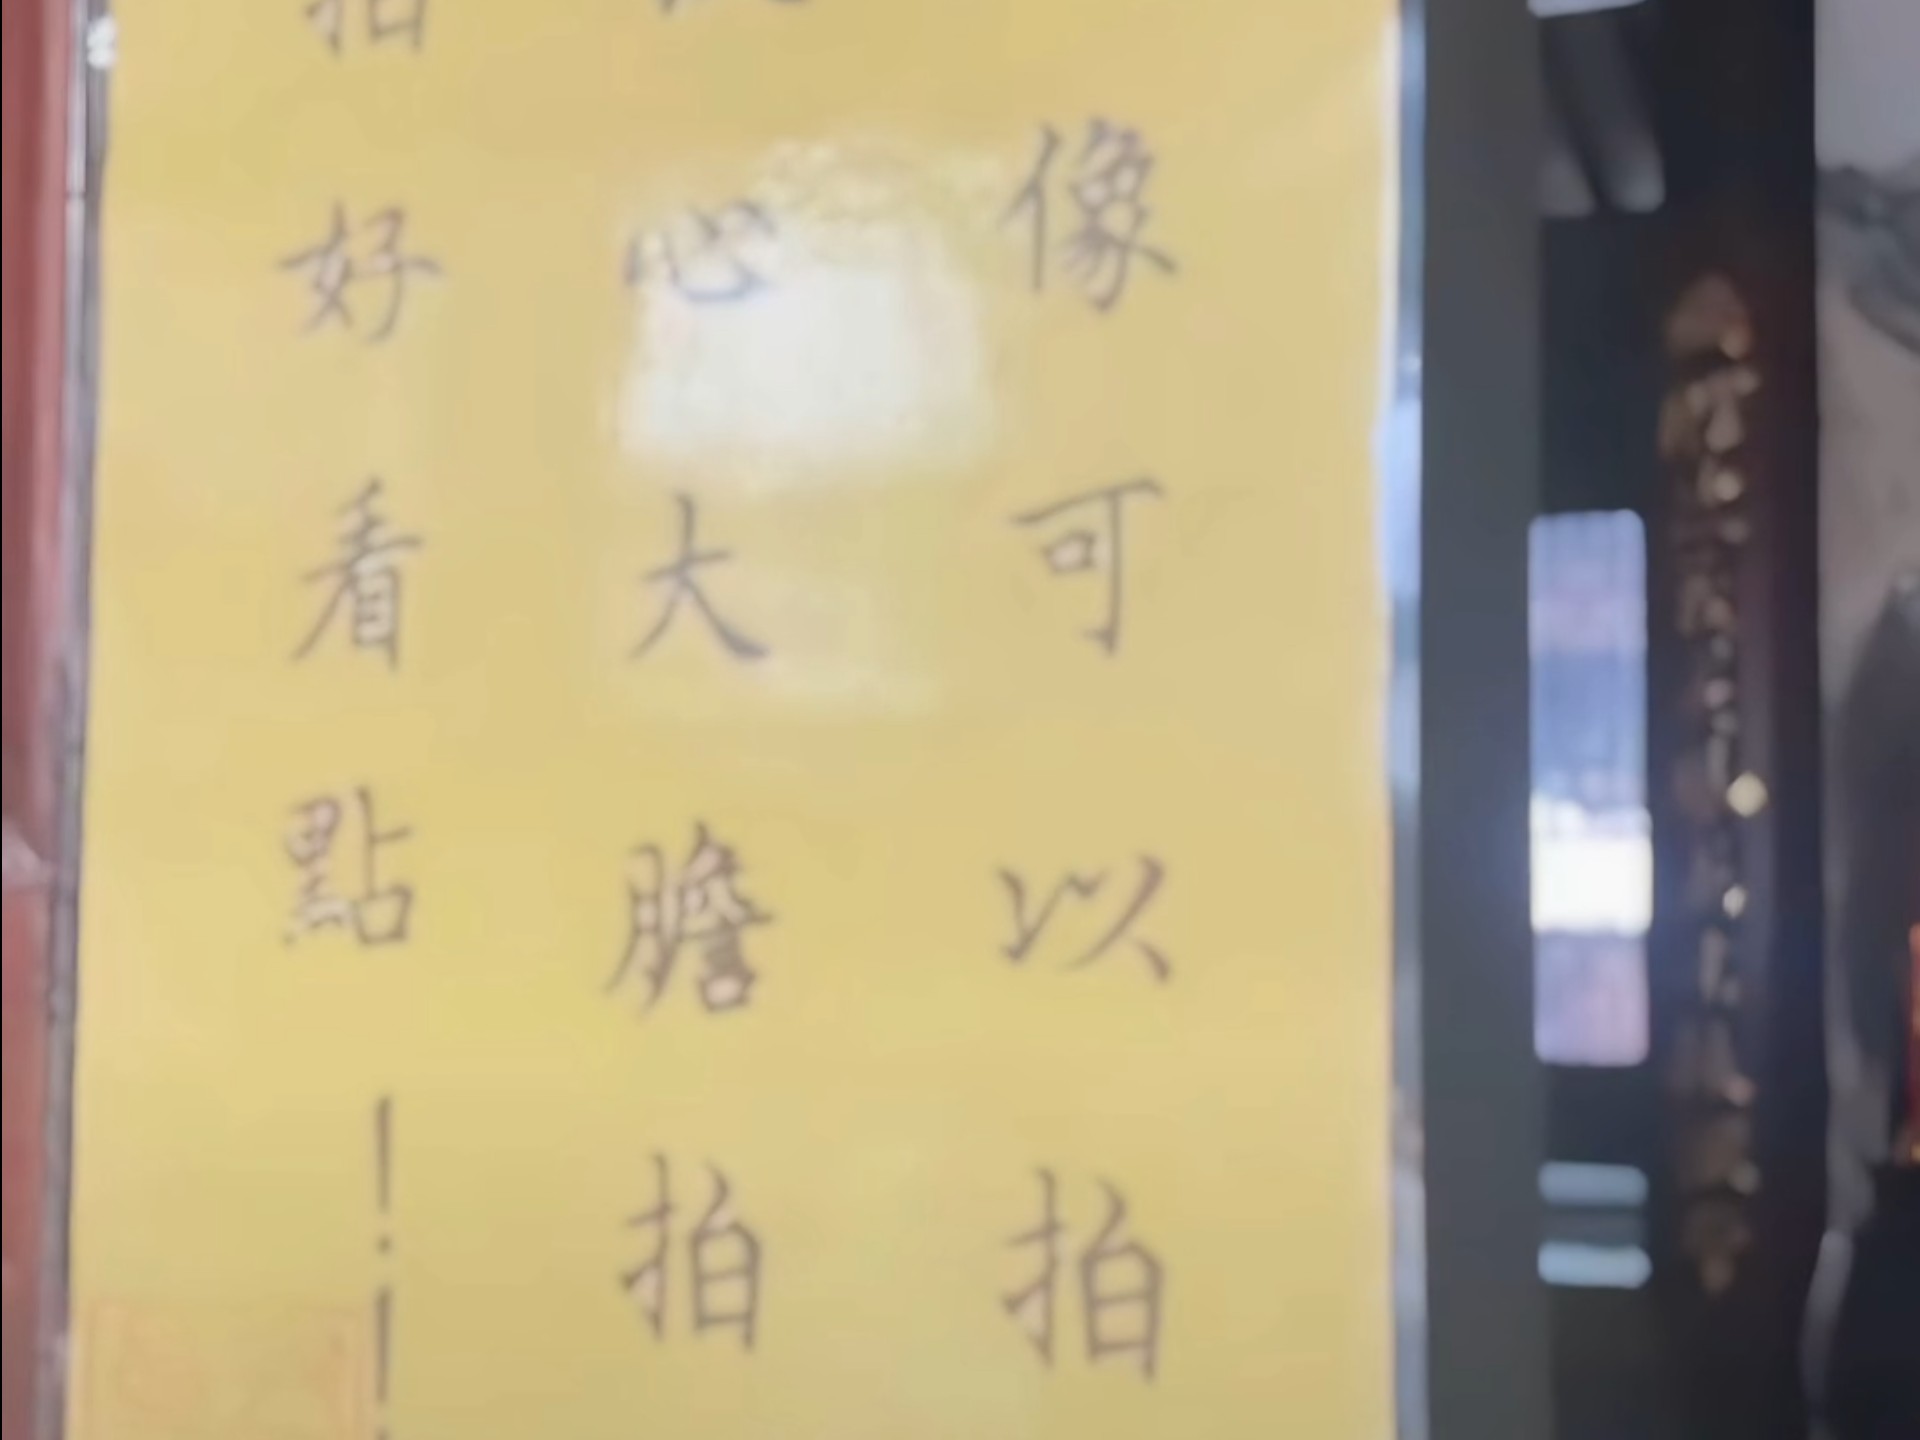 像可以拍
心大膽拍
拍好看點！！